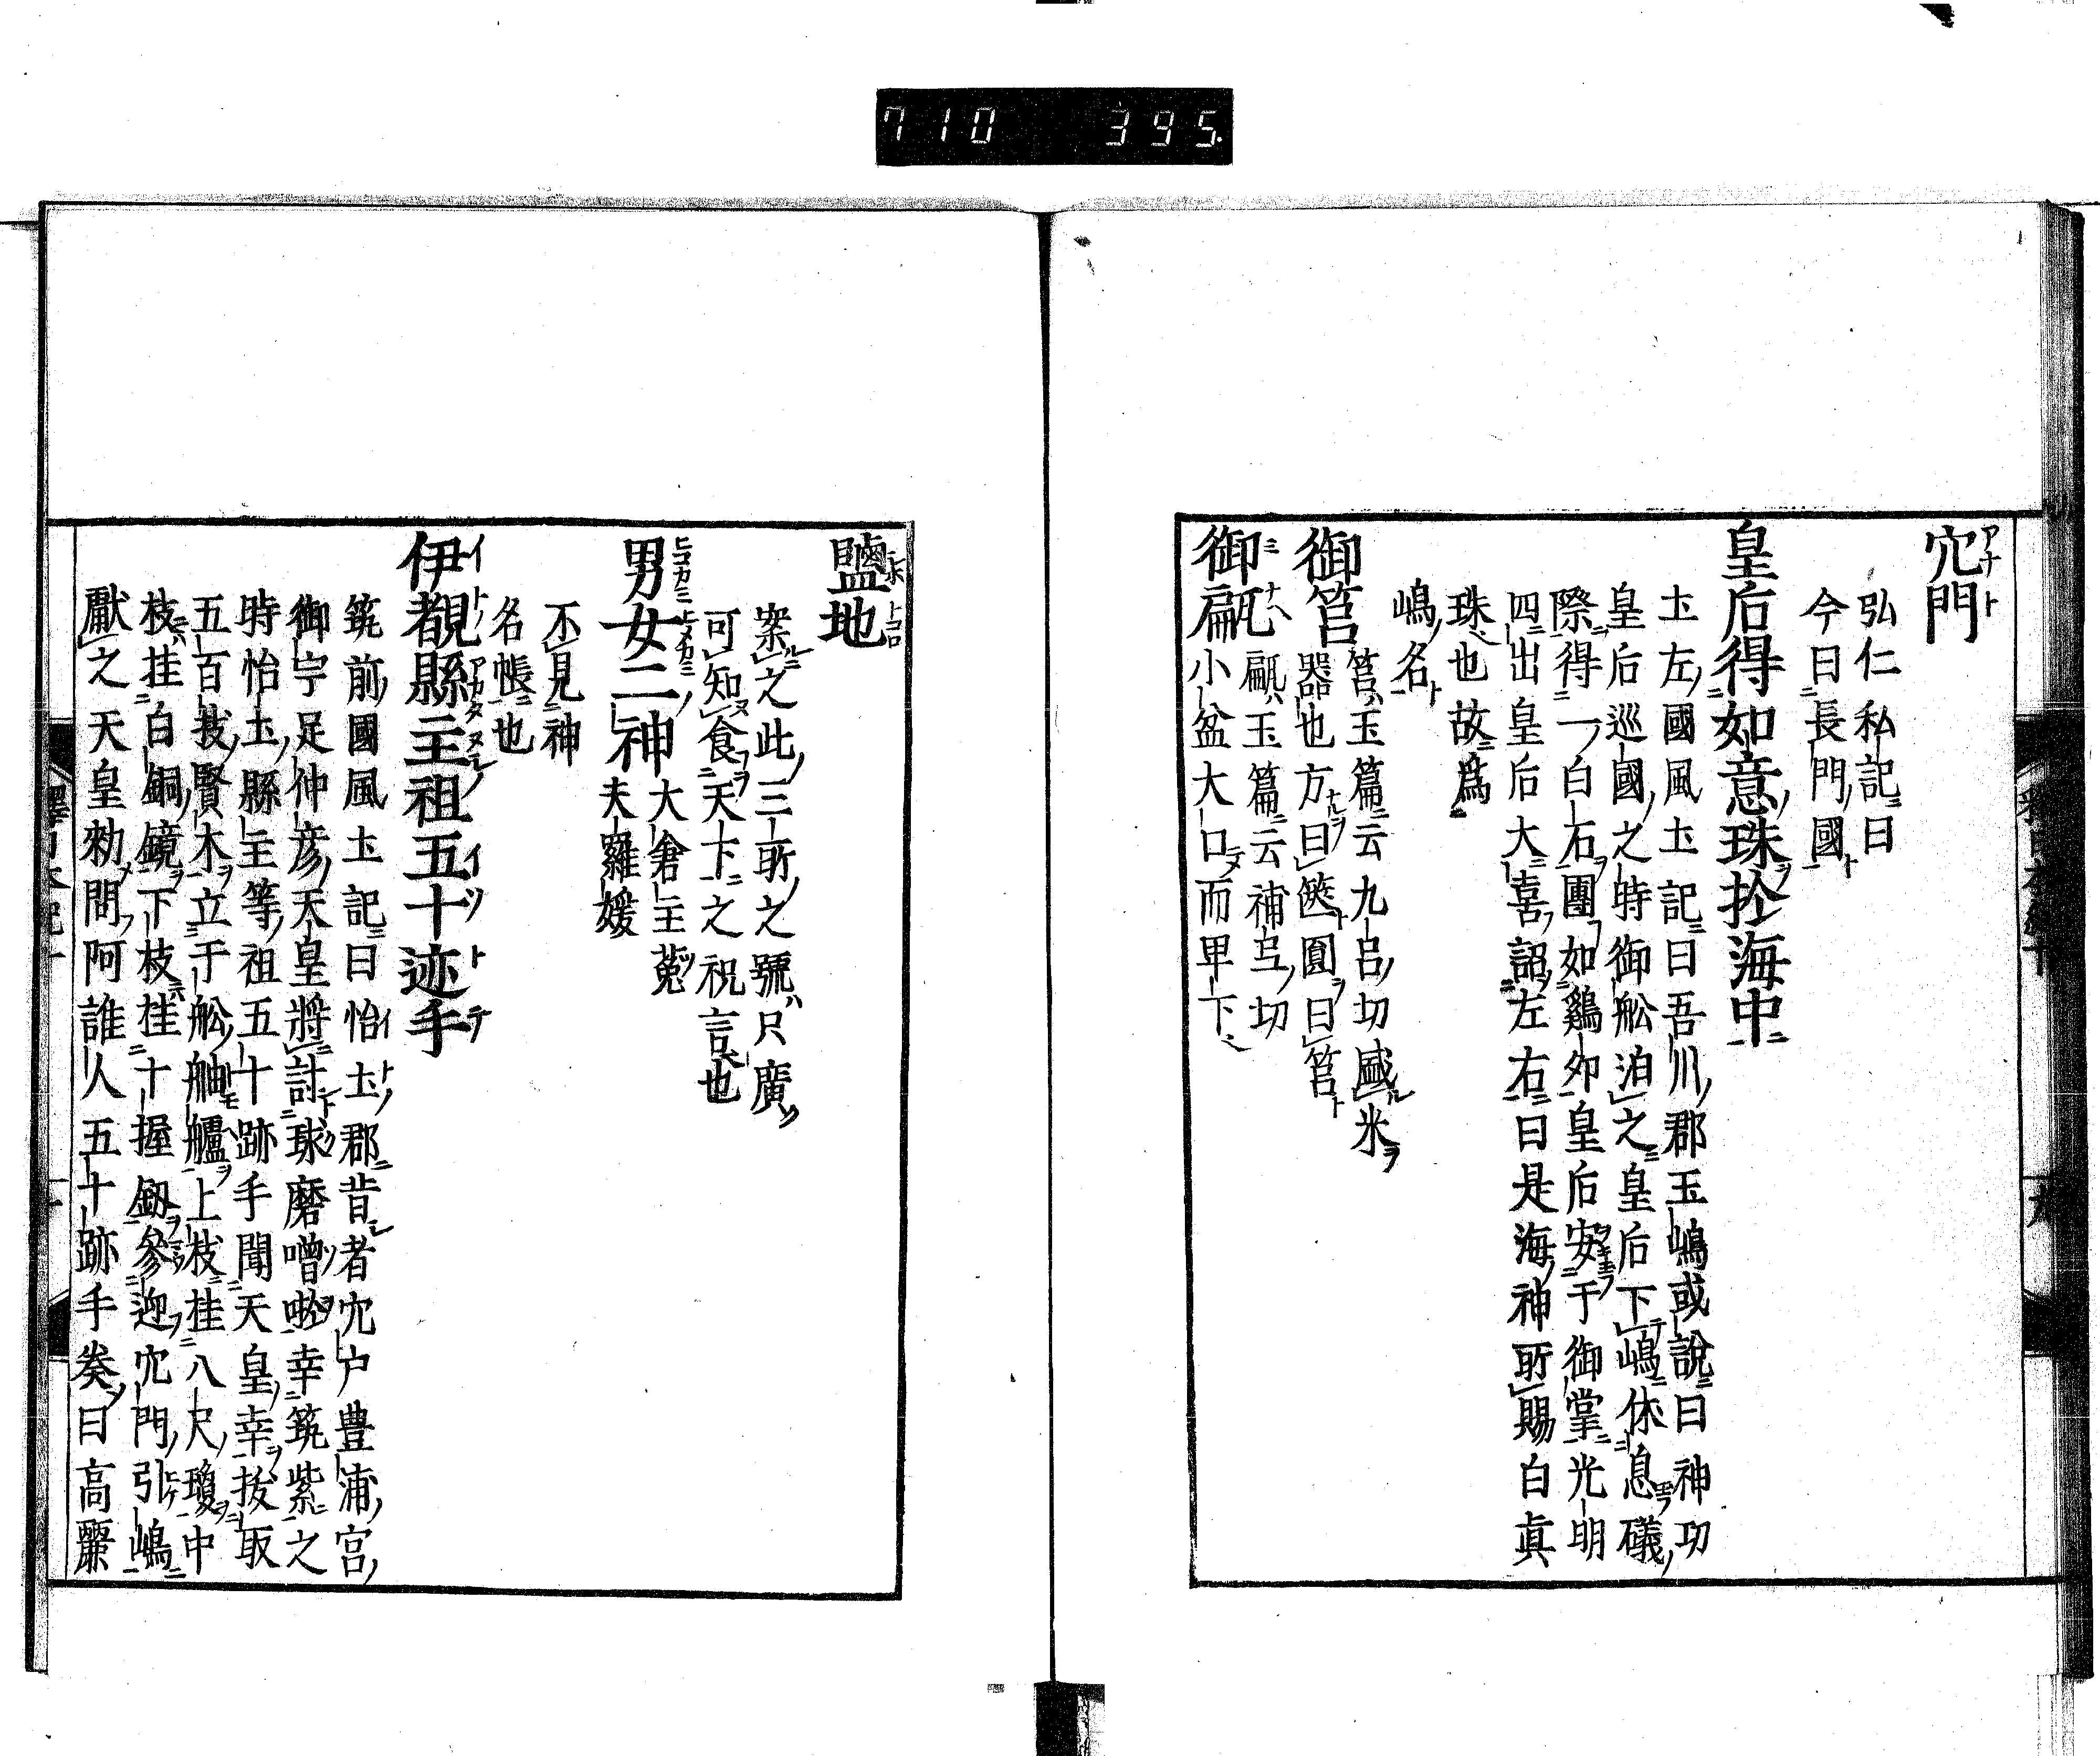 710 395.
穴門
弘仁私記曰
今曰長門國
皇后得如意珠於海中
土左國風土記曰吾川郡玉嶋或說曰神功
皇后巡國之時御舩泊之皇后下嶋休息礒
際得一白石團如鷄卵皇后安于御掌光明
四出皇后大喜詔左右曰是海神所賜白眞
珠也故爲
嶋名
御筥
筥玉篇云九呂切盛米
器也方曰篋圓曰筥
御甂
甂玉篇云補玄切
小盆大口而卑下
鹽地
案之此三所之號只廣
可知食天下之祝言也
男女二神
大倉主菟
夫羅媛
不見神
名帳也
伊覩縣主祖五十迹手
筑前國風土記曰怡土郡昔者穴戸豊浦宮
御宇足仲彦天皇將討球磨噌唹幸筑紫之
時怡土縣主等祖五十跡手聞天皇幸拔取
五百枝賢木立于舩舳艫上枝挂八尺瓊中
枝挂白銅鏡下枝挂十握劔參迎穴門引嶋
獻之天皇勅問阿誰人五十跡手奏曰高麗